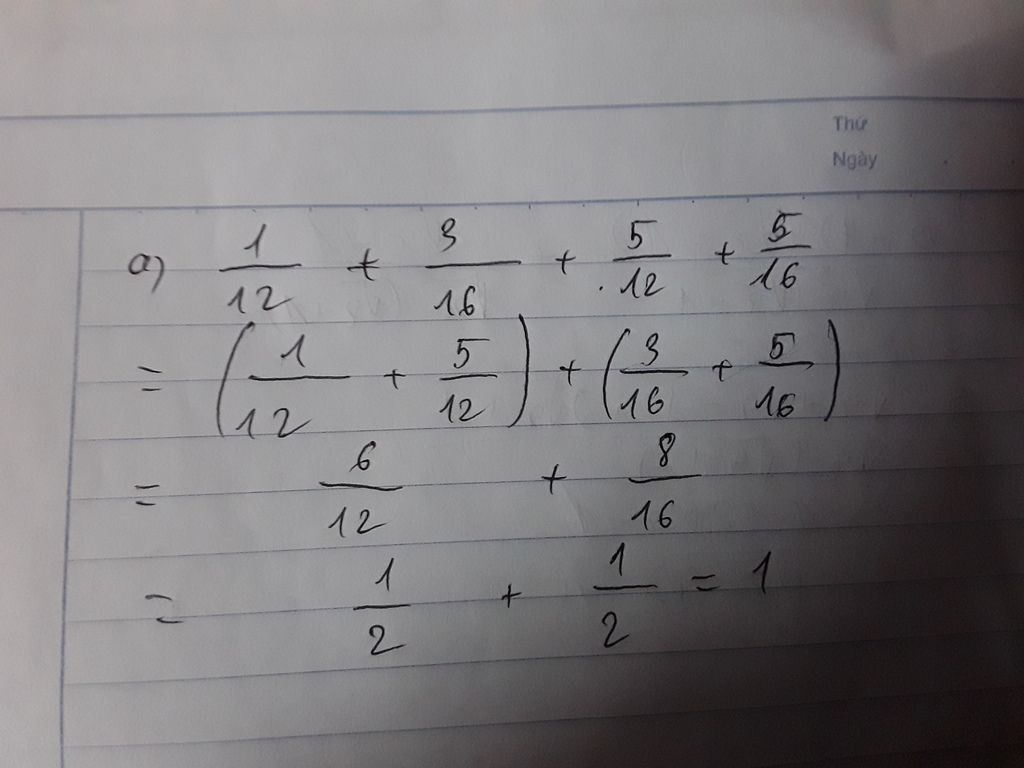 Thứ
Ngày
a) 1/12 + 3/16 + 5/12 + 5/16
= (1/12 + 5/12) + (3/16 + 5/16)
= 6/12 + 8/16
= 1/2 + 1/2 = 1